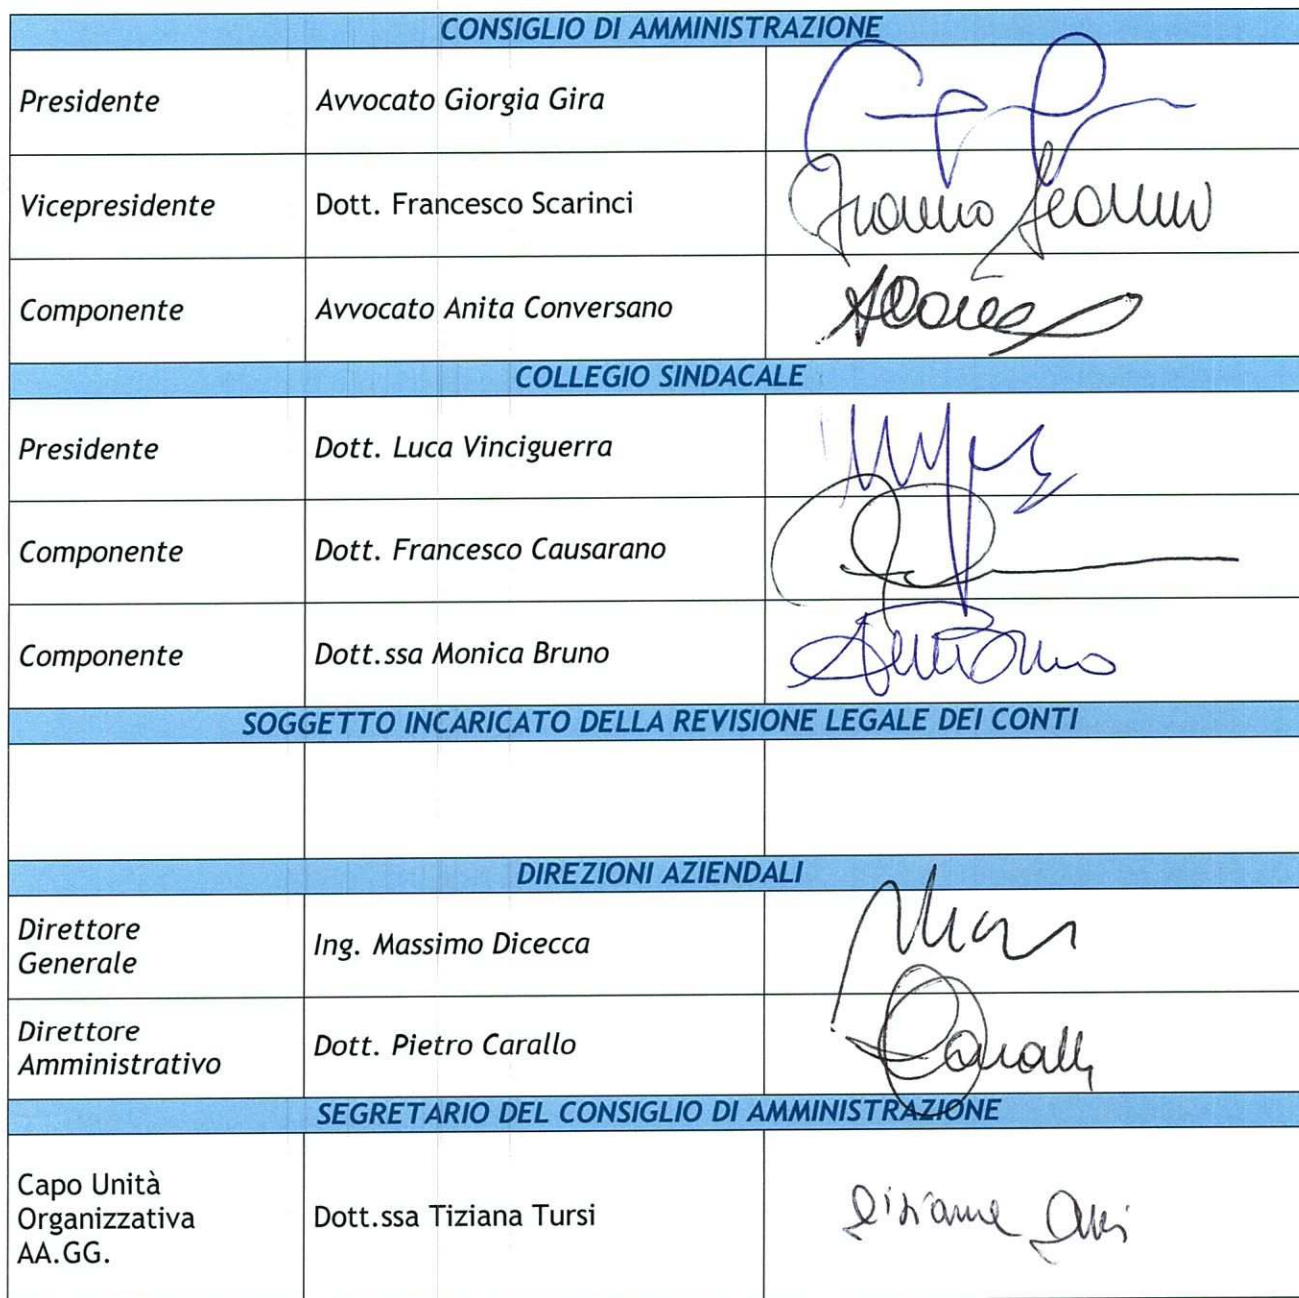 CONSIGLIO DI AMMINISTRAZIONE
Presidente Avvocato Giorgia Gira
Vicepresidente Dott. Francesco Scarinci
Componente Avvocato Anita Conversano
COLLEGIO SINDACALE
Presidente Dott. Luca Vinciguerra
Componente Dott. Francesco Causarano
Componente Dott.ssa Monica Bruno
SOGGETTO INCARICATO DELLA REVISIONE LEGALE DEI CONTI
DIREZIONI AZIENDALI
Direttore
Generale
Ing. Massimo Dicecca
Direttore
Amministrativo
Dott. Pietro Carallo
SEGRETARIO DEL CONSIGLIO DI AMMINISTRAZIONE
Capo Unità
Organizzativa
AA.GG.
Dott.ssa Tiziana Tursi